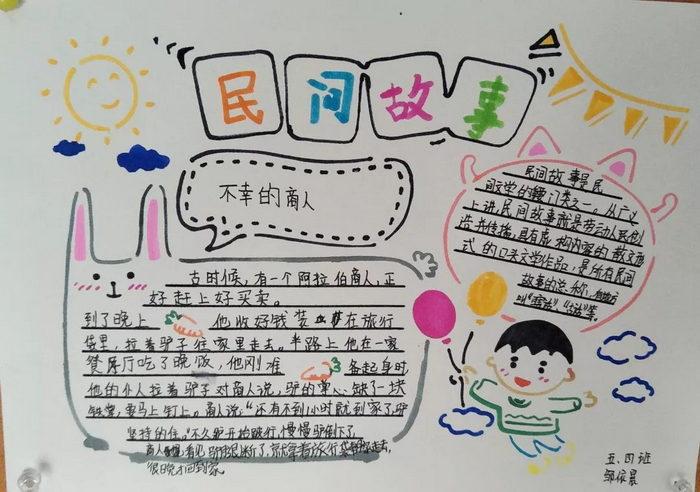 民间故事
不幸的商人
古时候，有一个阿拉伯商人，正
好赶上好买卖。
到了晚上他收好钱装在旅行
袋里，拉着驴子往家里走去。半路上他在一家
餐厅吃了晚饭，他刚准备起身时
他的仆人拉着驴子对商人说，驴的掌心缺了一块
铁掌，要马上钉上。商人说，“还有不到1小时就到家了，驴
坚持的住。”不久驴开始跛行，慢慢驴倒下了，
商人看见驴腿断了，就拿着旅行袋走去，
很晚才回到家
民间故事是民
间文学的门类之一，从广义
上讲，民间故事就是劳动人民创
造并传播，具有虚构内容的散文形
式的口头文学作品，是所有民间
故事的总称，
叫“瞎话”“古话”等。
五、四班